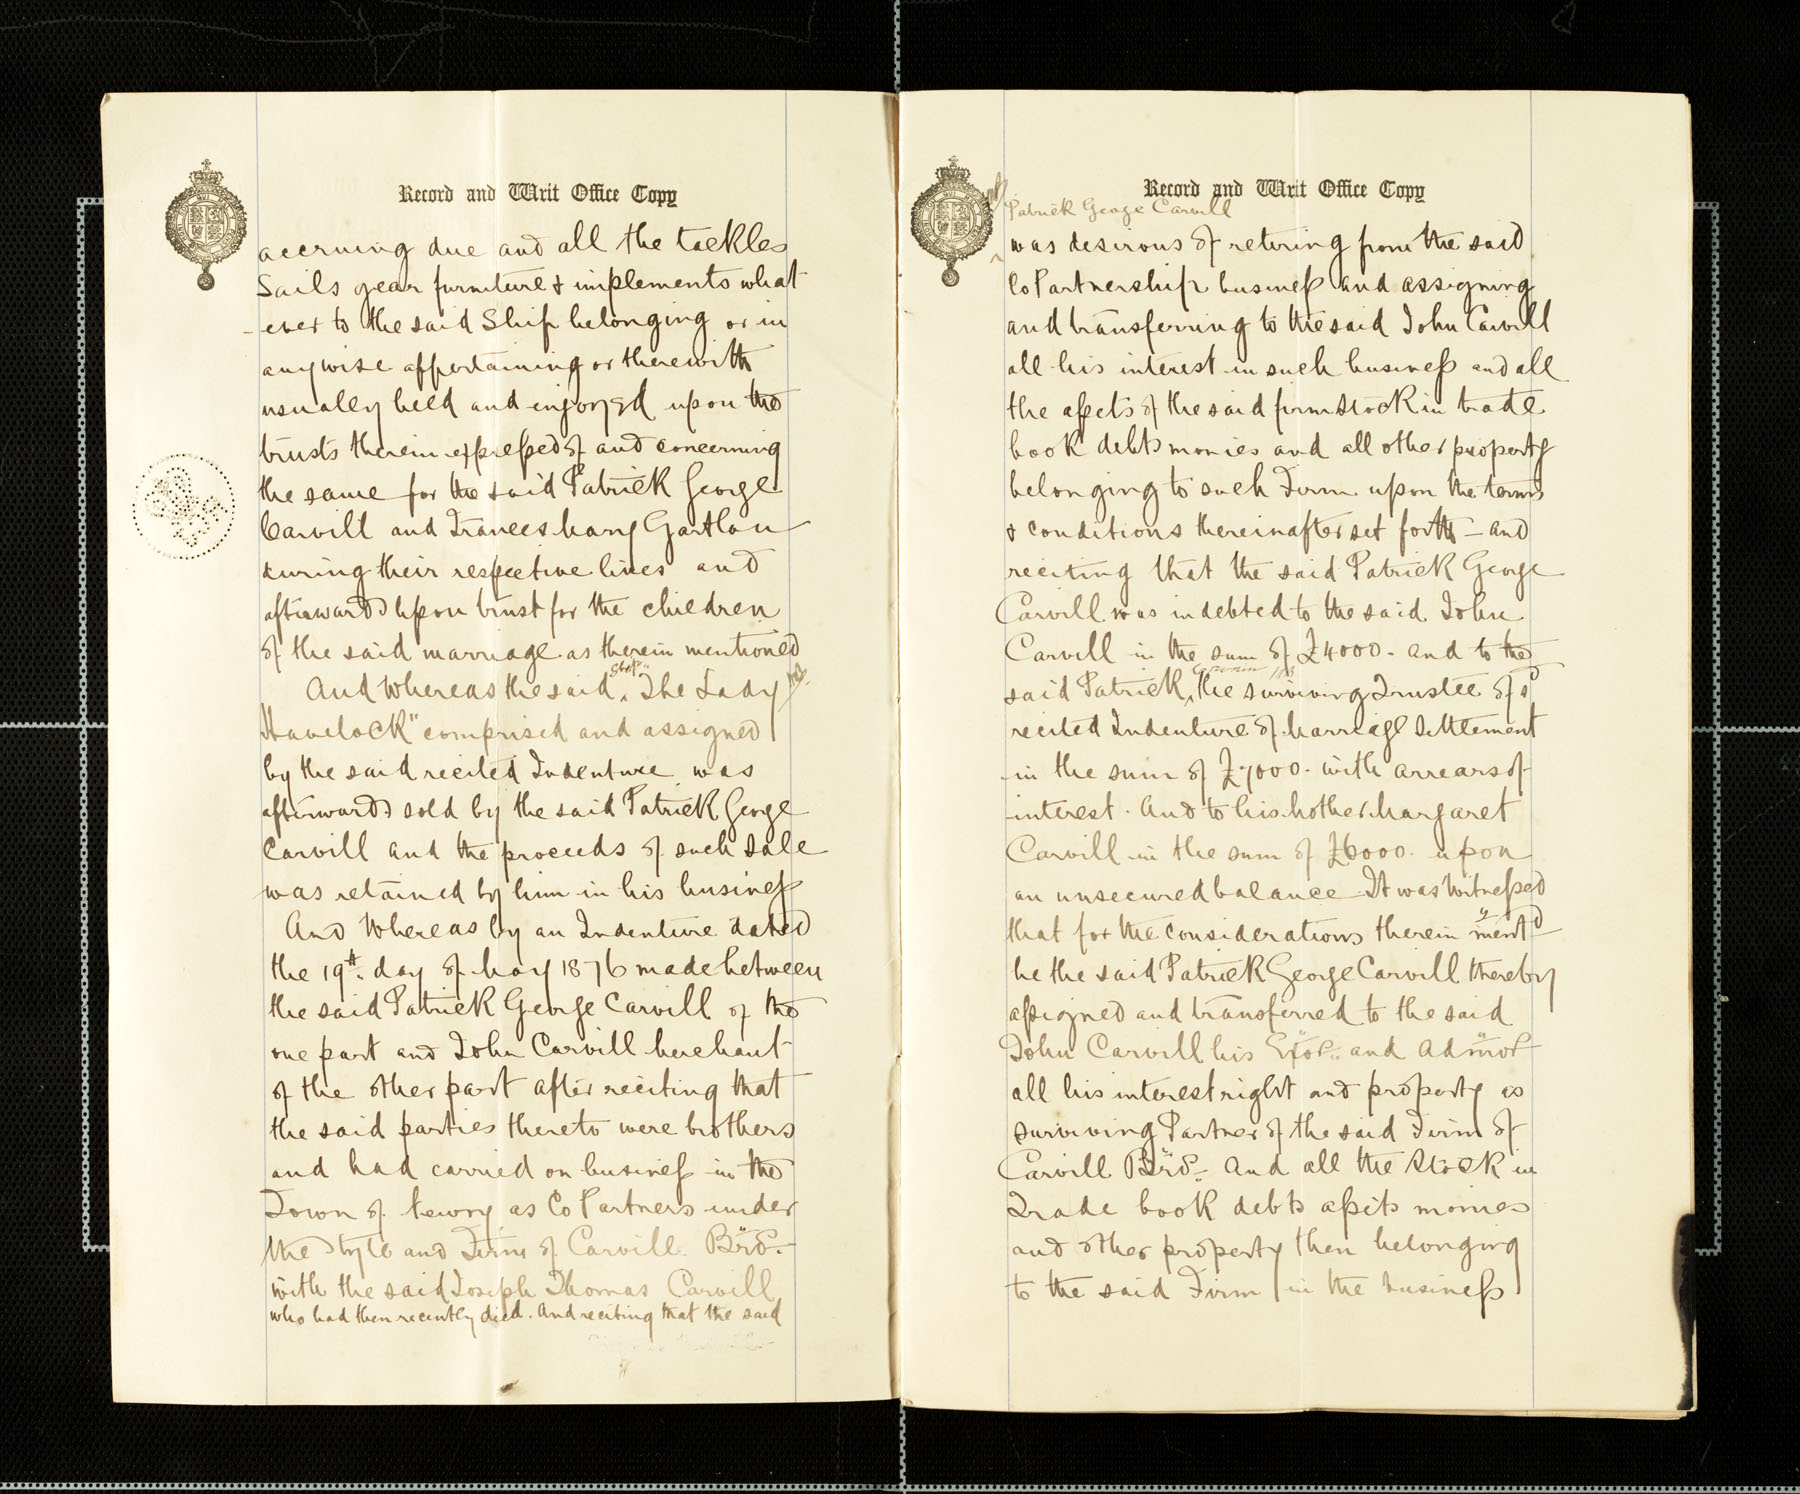 Record and Writ Office Copy
accruing due and all the tackles
Sails gear furniture & implements what
-ever to the said Ship belonging or in
anywise appertaining or therewith
usually held and enjoyed upon the
trusts therein expressed of and concerning
the same for the said Patrick George
Carvill and Frances Mary Gartlan
during their respective lives and
afterwards upon trust for the children
of the said marriage as therein mentioned
And Whereas the said Ship "The Lady
Havelock" comprised and assigned
by the said recited Indenture was
afterwards sold by the said Patrick George
Carvill and the proceeds of such sale
was retained by him in his business
And Whereas by an Indenture dated
the 19th day of May 1876 made between
the said Patrick George Carvill of the
one part and John Carvill Merchant
of the other part after reciting that
the said parties thereto were brothers
and had carried on business in the
Town of Newry as Co Partners under
the style and Firm of Carvill Bros.
with the said Joseph Thomas Carvill
who had then recently died. And reciting that the said
Record and Writ Office Copy
Patrick George Carvill
was desirous of retiring from the said
Co Partnership business and assigning
and transferring to the said John Carvill
all his interest in such business and all
the assets of the said firm Stock in trade
book debts monies and all other property
belonging to such Firm upon the terms
& conditions thereinafter set forth - and
reciting that the said Patrick George
Carvill was indebted to the said John
Carvill in the sum of £4000 - and to the
said Patrick the surviving Trustee of sd
recited Indenture of Marriage Settlement
in the sum of £7000 - with arrears of
interest. And to his Mother Margaret
Carvill in the sum of £6000 - upon
an unsecured balance It was Witnessed
that for the considerations therein mentd
he the said Patrick George Carvill thereby
assigned and transferred to the said
John Carvill his Exors and Admors
all his interest right and property as
surviving Partner of the said Firm of
Carvill Bros. And all the Stock in
Trade book debts assets monies
and other property then belonging
to the said Firm in the business